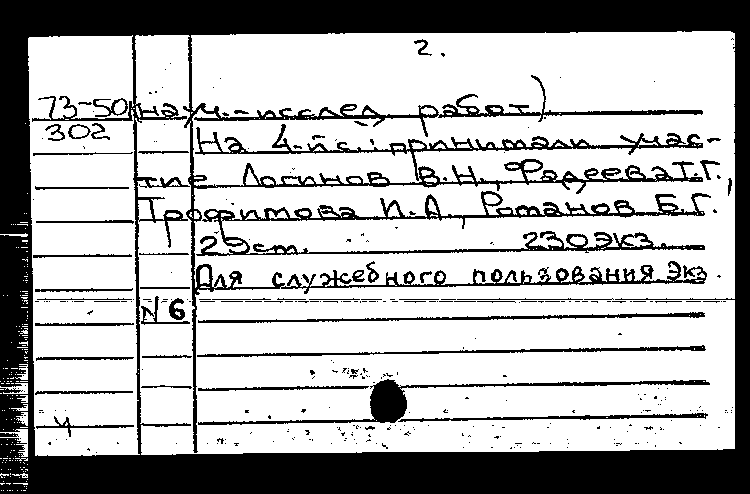 2.
73-50 науч.-исслед работ)
302 На 4-й с.: принимали учас-
тие Логинов В.Н., Фадеева Т.Г.,
Трофимова И.А., Романов Б.Г.
29 ст. 230 экз.
Для служебного пользования Экз.
N 6
ч